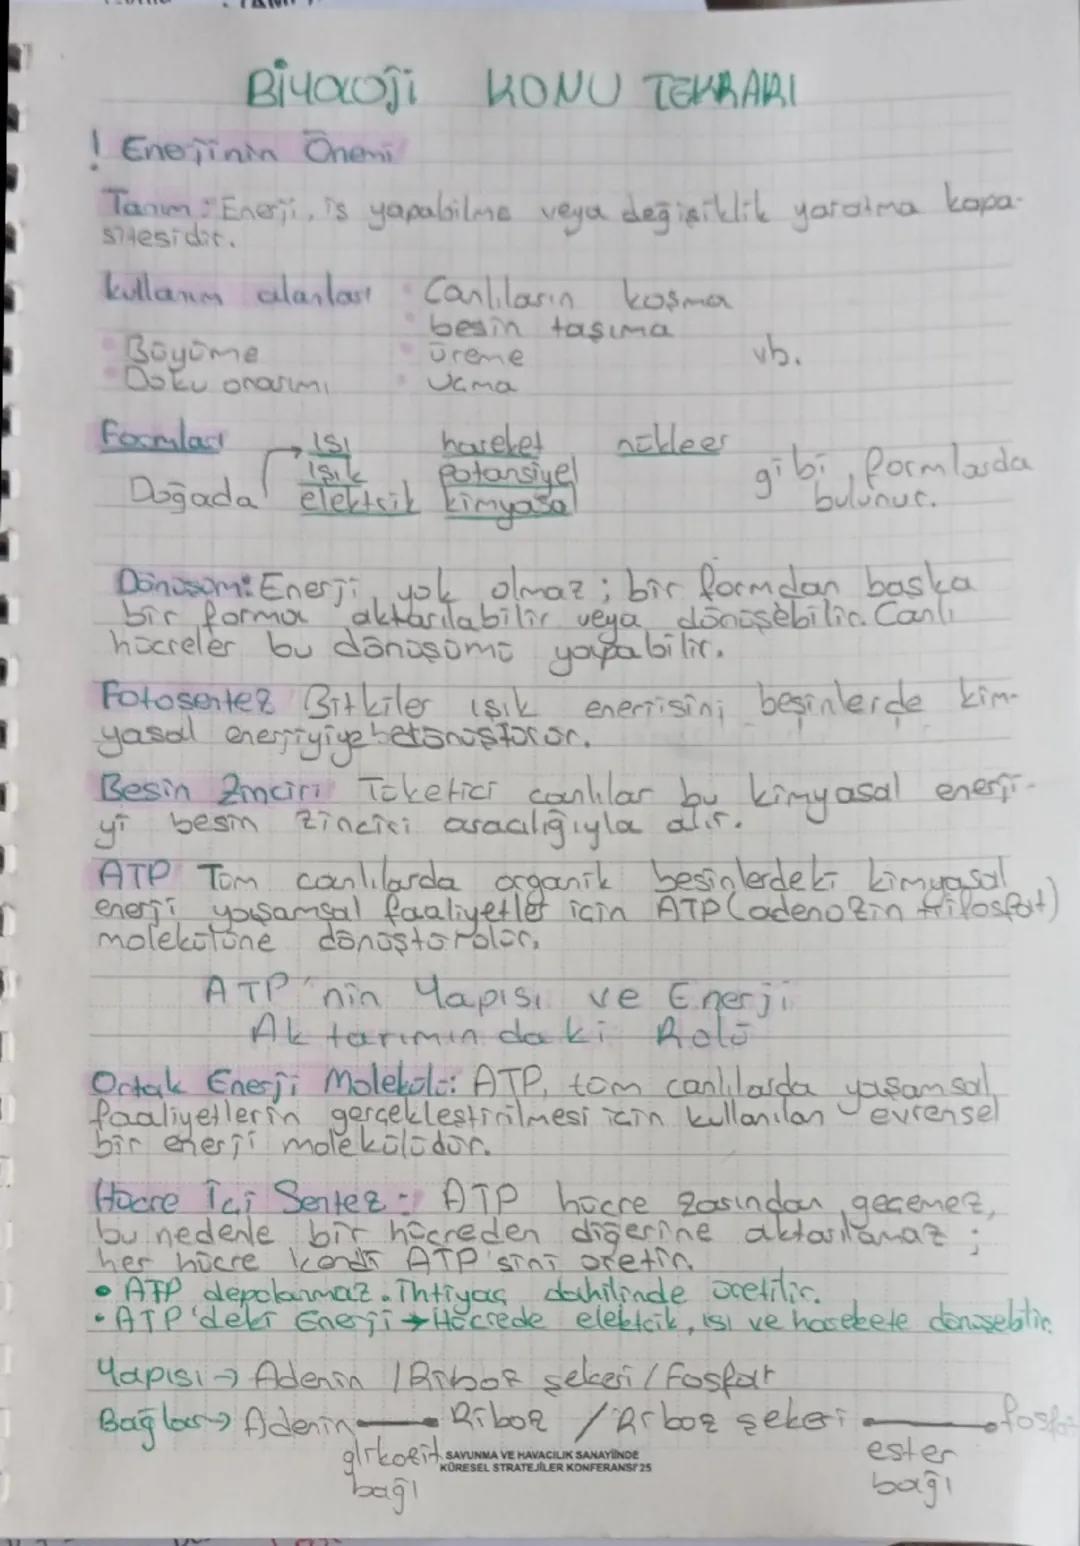 BİYOLOJİ KONU TEKRARI
! Enerjinin Önemi
Tanım: Enerji, iş yapabilme veya değişiklik yaratma kapa-
sitesidir.
Kullanım alanları • Canlıların koşma
• besin taşıma
• Büyüme • üreme vb.
• Doku onarımı • uçma
Formları → ısı hareket nükleer
ışık potansiyel gibi formlarda
Doğada elektrik kimyasal bulunur.
Dönüşüm: Enerji yok olmaz; bir formdan başka
bir forma aktarılabilir veya dönüşebilir. Canlı
hücreler bu dönüşümü yapabilir.
Fotosentez Bitkiler ışık enerjisini besinlerde kim-
yasal enerjiyiye
Besin Zinciri Tüketici canlılar bu kimyasal enerji-
yi besin zinciri aracılığıyla alır.
ATP Tüm canlılarda organik besinlerdeki kimyasal
enerji yaşamsal faaliyetler için ATP (adenozin trifosfat)
molekülüne dönüştürülür.
ATP'nin Yapısı ve Enerji
Aktarımındaki Rolü
Ortak Enerji Molekülü: ATP, tüm canlılarda yaşamsal
faaliyetlerin gerçekleştirilmesi için kullanılan evrensel
bir enerji molekülüdür.
Hücre İçi Sentez: ATP hücre zarından geçemez,
bu nedenle bir hücreden diğerine aktarılamaz;
her hücre kendi ATP'sini üretir.
• ATP depolanmaz. İhtiyaç dahilinde üretilir.
• ATP'deki Enerji → Hücrede elektrik, ısı ve harekete dönüşebilir.
Yapısı → Adenin / Riboz şekeri / Fosfat
Bağlar → Adenin — Riboz / Riboz şekeri — fosfat
glikozit ester
SAVUNMA VE HAVACILIK SANAYİİNDE
KÜRESEL STRATEJİLER KONFERANSI'25
bağı bağı